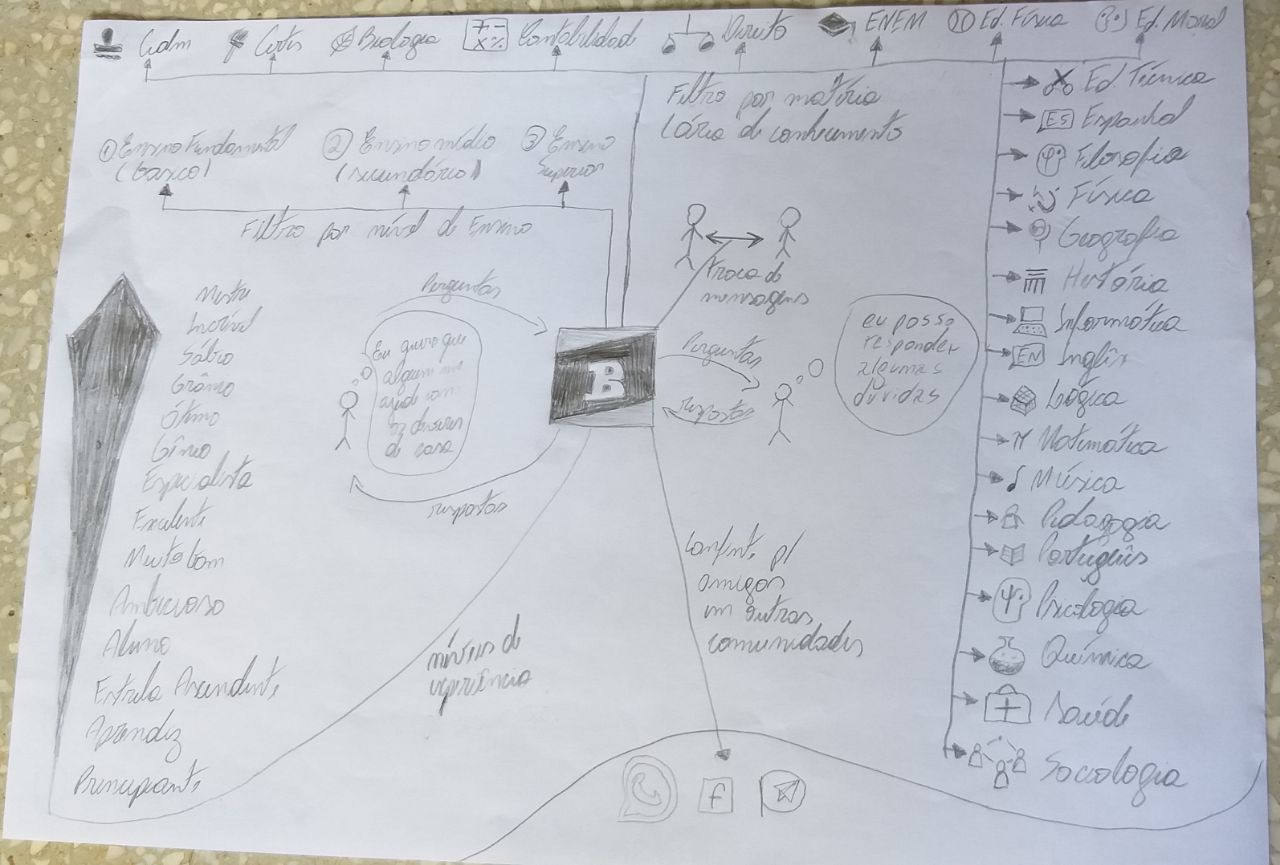 Adm
Artes
Biologia
Contabilidade
Direito
ENEM
Ed. Física
Ed. Moral
Filtro por matéria
(área de conhecimento
① Ensino Fundamental
(básico)
② Ensino médio
(secundário)
③ Ensino
Superior
Filtro por nível de Ensino
Ed. Técnica
ES Espanhol
Filosofia
Física
Geografia
História
Informática
EN Inglês
Lógica
π Matemática
Música
Pedagogia
Português
Psicologia
Química
Saúde
Sociologia
troca de
mensagens
Mestre
Incrível
Sábio
Grânio
Ótimo
Gênio
Especialista
Excelente
Muito bom
Ambicioso
Aluno
Estrela Ascendente
Aprendiz
Principiante
Perguntas
Eu quero que
alguém me
ajude com
os deveres
de casa
respostas
B
Perguntas
respostas
eu posso
responder
algumas
dúvidas
níveis de
experiência
p/
amigos
em outras
comunidades
f